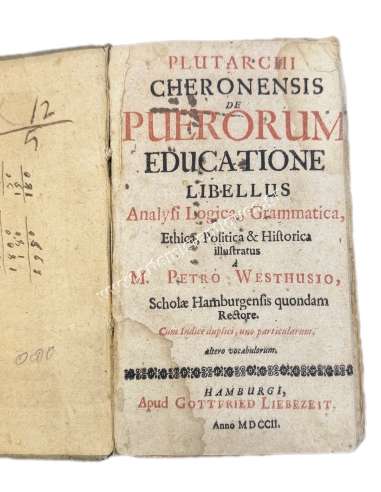 PLUTARCHI
CHERONENSIS
DE
PUERORUM
EDUCATIONE
LIBELLUS
Analysi Logica, Grammatica,
Ethica, Politica & Historica
illustratus
A
M. PETRO WESTHUSIO,
Scholæ Hamburgensis quondam
Rectore.
Cum Indice duplici, uno particularum,
altero vocabulorum.
HAMBURGI,
Apud GOTTFRIED LIEBEZEIT,
Anno MDCCII.
12
5